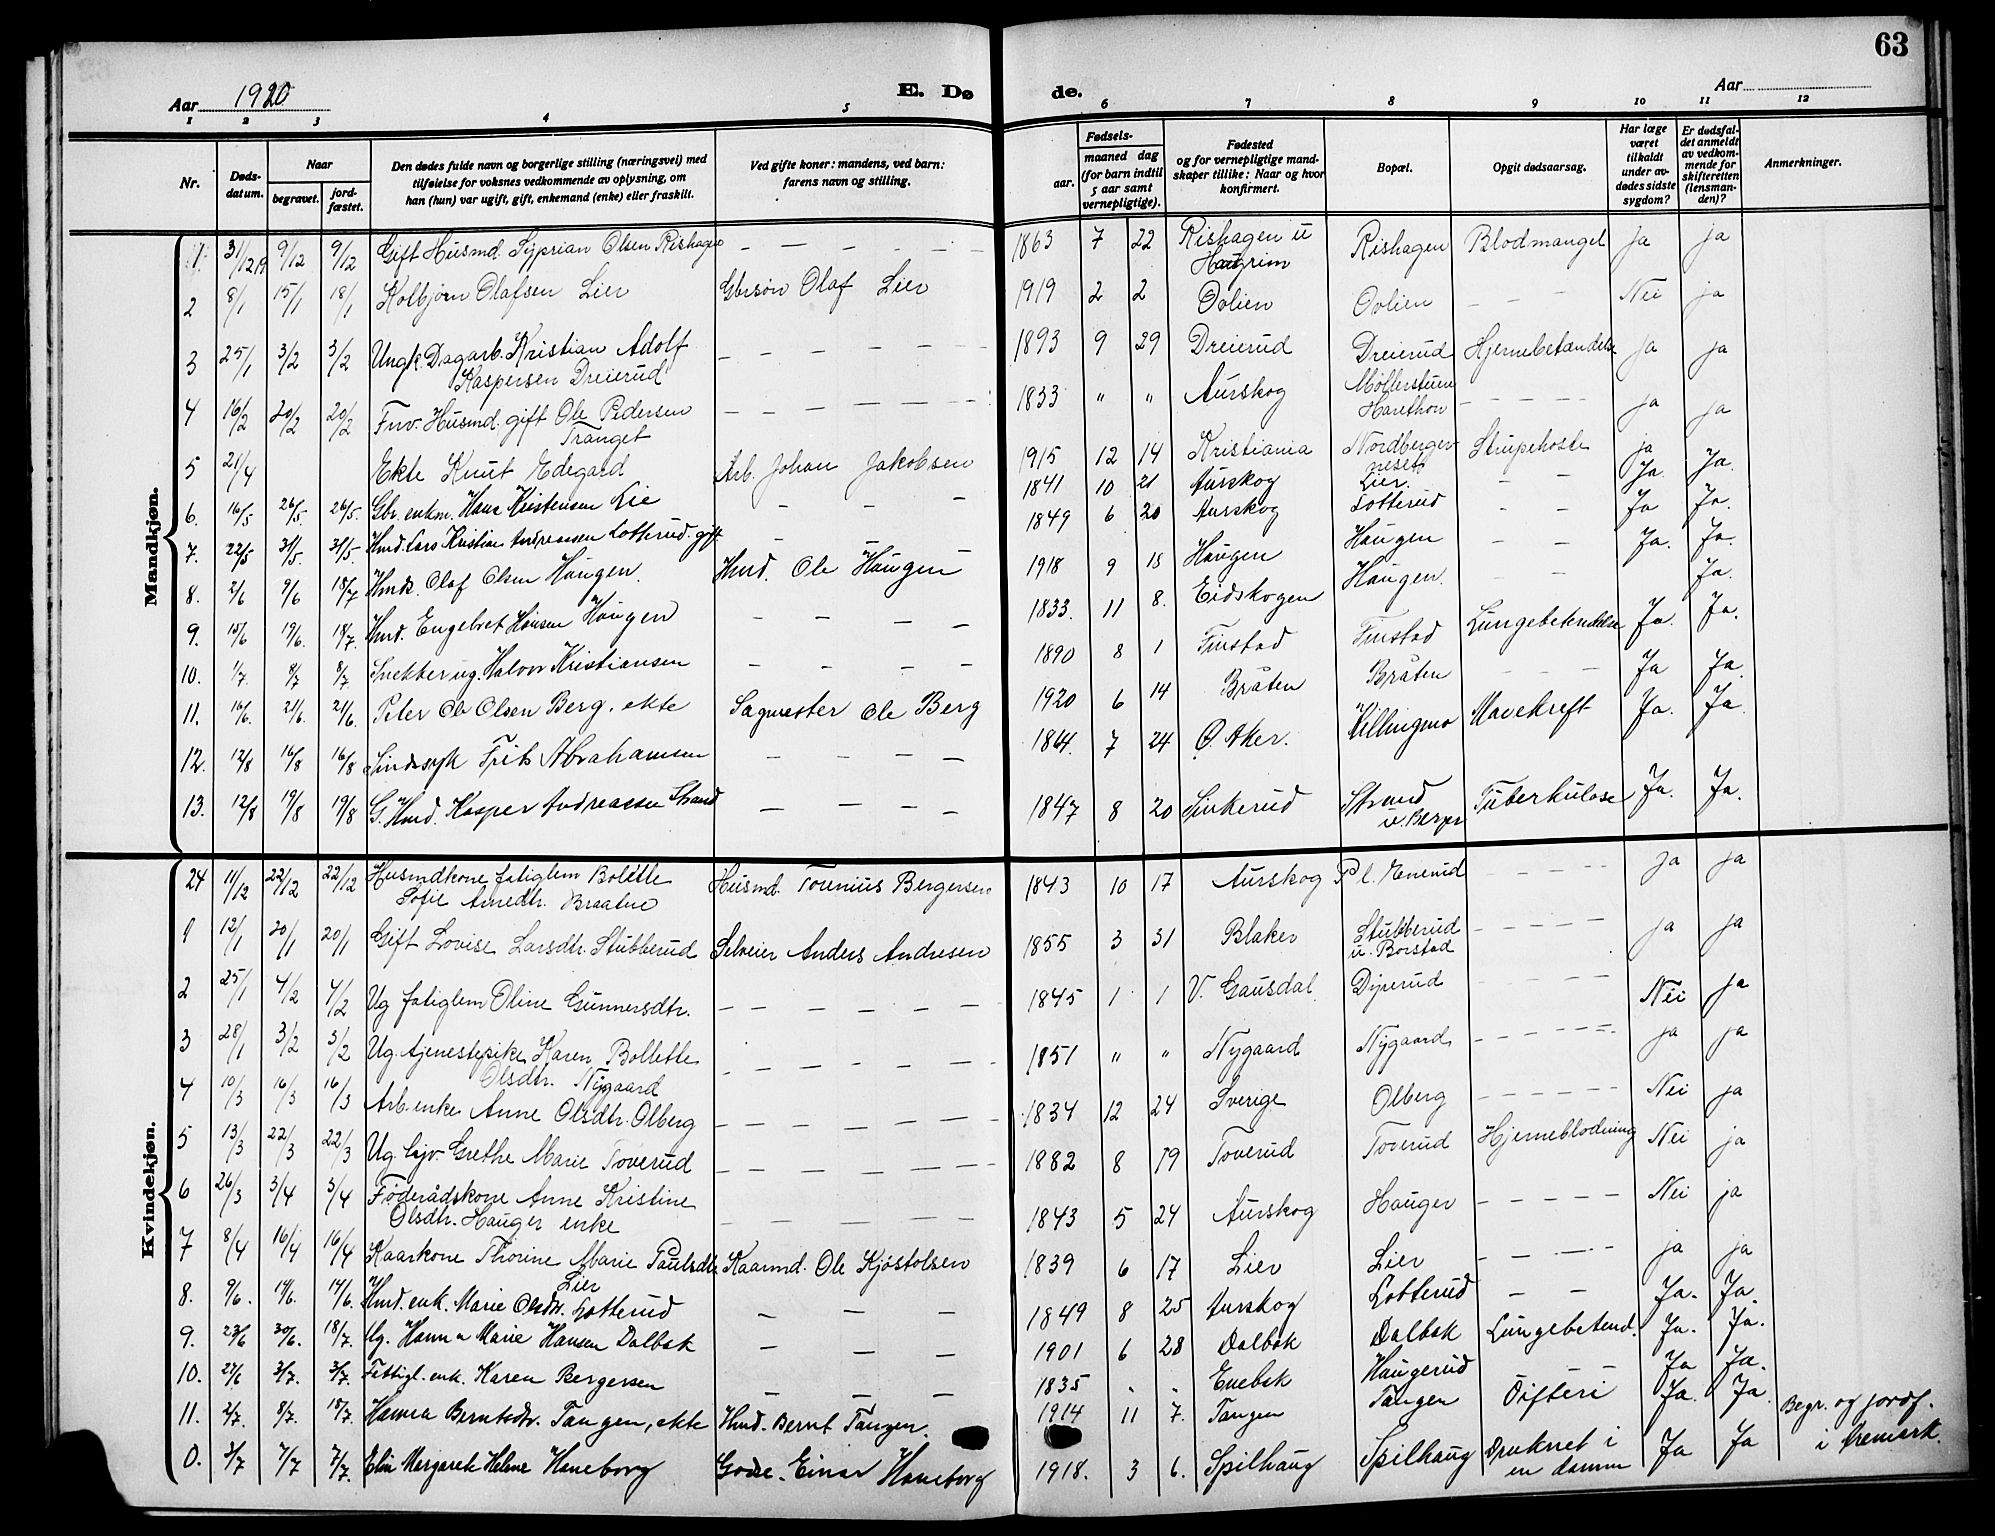 63
Aar 1920
E. Dø
de.
Aar
1 2 3 4 5 6 7 8 9 10 11 12
Nr.
Døds-
datum.
Naar
begravet.
jord-
fæstet.
Den dødes fulde navn og borgerlige stilling (næringsvei) med
tilføielse for voksnes vedkommende av oplysning, om
han (hun) var ugift, gift, enkemand (enke) eller fraskilt.
Ved gifte koner: mandens, ved barn:
farens navn og stilling.
Fødsels-
aar.
maaned dag
(for barn indtil
5 aar samt
vernepligtige).
Fødested
og for vernepligtige mand-
skaper tillike: Naar og hvor
konfirmert.
Bopæl.
Opgit dødsaarsag.
Har læge
været
tilkaldt
under av-
dødes sidste
sygdom?
Er dødsfal-
det anmeldt
av vedkom-
mende for
skifteretten
(lensman-
den)?
Anmerkninger.
Mandkjøn.
1. 31/12 19 9/12 9/12 Gift Husmd. Syprian Olsen Rishagen — — — — — 1863 7 22 Rishagen u Rishagen Blodmangel Ja ja
2 8/1 15/1 18/1 Kolbjørn Olafsen Lier Gbrsøn Olaf Lier 1919 2 2 Ovlien Ovlien — — — Nei ja
3 25/1 3/2 3/2 Ungk. Dagarb. Kristian Adolf
Kaspersen Dreierud — — — — — 1893 9 29 Dreierud Dreierud Hjernebetændelse ja ja
4 16/2 20/2 20/2 Frv. Husmd. gift Ole Pedersen
Tranget — — — — — 1833 " " Aurskog Møllerstuen
Harethon — — — — ja ja
5 21/4 Ekte Knut Edegard Arb. Johan Jakobsen 1915 12 14 Kristiania Nordberger-
neset Strupehoste ja Ja.
6. 16/5 26/5. 26/5. Gbr. enkm. Hans Kristensen Lie — — — 1841 10 21 Aurskog Lier. — — Ja. Ja.
7. 22/5 31/5. 31/5. Hmd. Lars Kristian Andreassen Lotterud. gift — — 1849 6 20 Aurskog Lotterud — — Ja Ja.
8. 2/6 9/6 18/7 Hmds. Olaf Olsen Haugen. Hmd. Ole Haugen 1918 9 15 Haugen Haugen — — Ja. Ja.
9. 15/6 19/6. 18/7. Hmd. Engebret Hansen Haugen — — — — 1833. 11 8. Eidskogen Haugen. — — Ja.
10. 1/7. 8/7 8/7. Snekker ug. Halvor Kristiansen — — — — 1890 8 1 Finstad Finstad Lungebetendelse Ja. Ja.
11. 16/6. 21/6. 21/6. Peter Ole Olsen Berg. ekte Sagmester Ole Berg 1920 6 14 Bråten Bråten — — — Ja Ja.
12. 12/8 16/8 16/8 Sindssyk Frits Abrahamsen — — — — 1864. 7 24 Ø. Aker. Killingmo Mavekreft Ja. Ja.
13. 12/8 19/8 19/8 G. Hmd. Kasper Andreassen Strand — — — 1847 8 20 Sinkerud Strand
u. Berger Tuberkulose Ja. Ja.
Kvindekjøn.
24 11/12 22/12 22/12 Husmdkone fatiglem Bolette
Sofie Arnedtr. Braaten Husmd. Torinius Bergersen 1843 10 17 Aurskog Pl. Enerud — — — — ja ja
1 12/1 20/1 20/1 Gift Lovise Larsdtr. Stubberud Selveier Anders Andresen 1855 3 31 Blaker Stubberud
u. Borstad — — — — ja ja
2 25/1 4/2 4/2 Ug fatiglem Oline Gunnersdtr. — — — — — 1845 1 1 V. Gausdal Dyrerud — — — — Nei ja
3 28/1 3/2 3/2 Ug. tjenestepike Karen Bollette
Olsdtr. Nygaard — — — — — 1851 " " Nygaard Nygaard — — — — ja ja
4 10/3 16/3 16/3 Arb. enke Anne Olsdtr. Olberg — — — — — 1834 12 24 Sverige Olberg — — — — Nei ja
5 13/3 22/3 22/3 Ug. Grethe Marie Toverud — — — — — 1882 8 19 Toverud Toverud Hjerneblødning Nei ja
6 26/3 3/4 3/4 Føderådskone Anne Kristine
Olsdtr. Hauger enke — — — — — 1843 5 24 Aurskog Hauger — — — — Nei ja
7 8/4 16/4 16/4 Kaarkone Thorine Marie Paulsdtr.
Lier Kaarmd. Ole Kjøstolsen 1839 6 17 Lier Lier — — — — ja ja
8. 9/6. 14/6. 14/6. Hmd. enk. Marie Olsdtr. Lotterud — — — 1849 8 25 Aurskog Lotterud — — Ja. Ja.
9. 23/6 30/6. 18/7. Ug. Hanna Marie Hansen Dalbak — — — 1901 6 28 Dalbak Dalbak Lungebetend. Ja. Ja.
10. 27/6 3/7. 3/7. Fattigl. enk. Karen Bergersen — — — 1835 . . Enebak Haugerud — — Ja Ja.
11. 2/7. 8/7. 18/7. Hanna Berntsdtr. Tangen, ekte Hmd. Bernt Tangen. 1914 11 7. Tangen Tangen Difteri Ja. Ja
0. 3/7 7/7 7/7. Elin Margarete Helene Haneborg Godse. Einar Haneborg 1918. 3 6. Spilhaug Spilhaug Druknet i
en damm Ja Ja Begr. og jordf.
i Aremark.